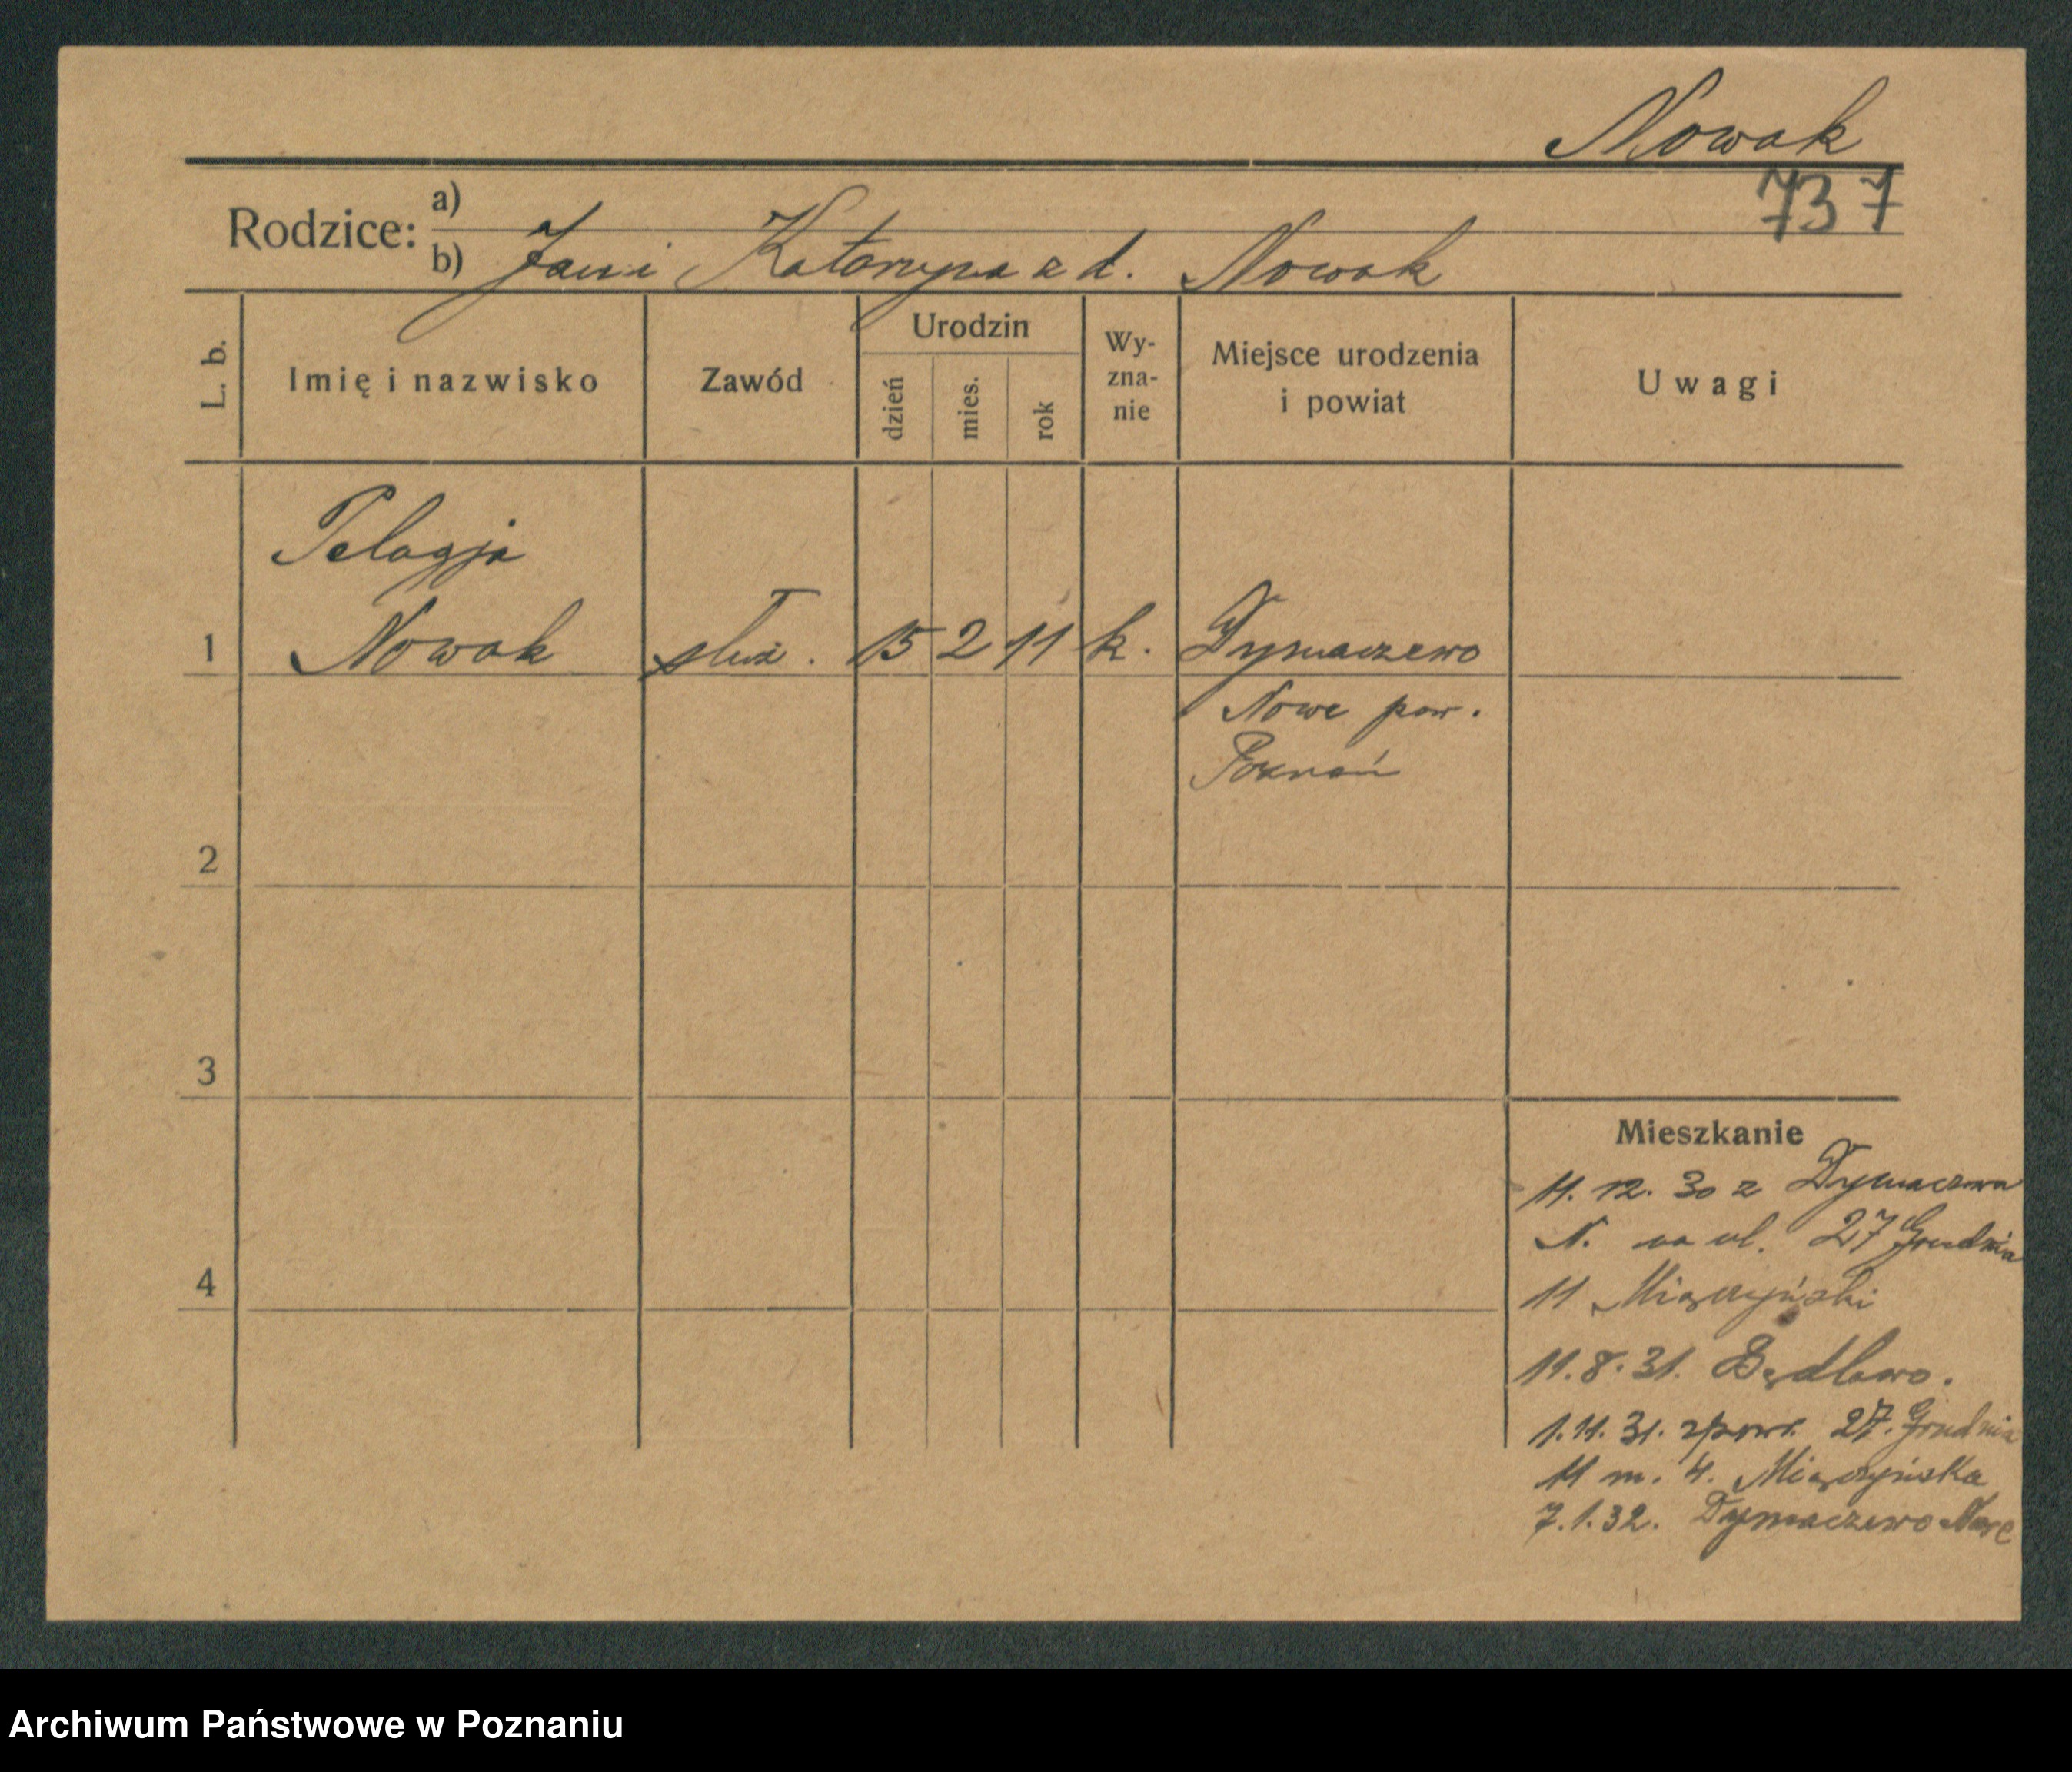 Nowak
737
Rodzice: a)
b) Jan i Katarzyna z d. Nowak
L. b.
Imię i nazwisko
Zawód
Urodzin
dzień
mies.
rok
Wy-
zna-
nie
Miejsce urodzenia
i powiat
Uwagi
Pelagja
1 Nowak służ. 15 2 11 k. Dymaczewo
Nowe pow.
Poznań
2
3
4
Mieszkanie
11. 12. 30 z Dymaczewa
N. na ul. 27 Grudnia
11 Miączyński
11. 8. 31. Będlewo.
1. 11. 31. zpowr. 27. Grudnia
11 m. 4. Miączyńska
7. 1. 32. Dymaczewo Nowe
Archiwum Państwowe w Poznaniu